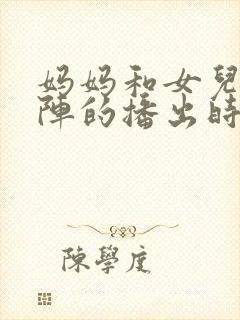 妈妈和女兒
陣的播出時
陳學度